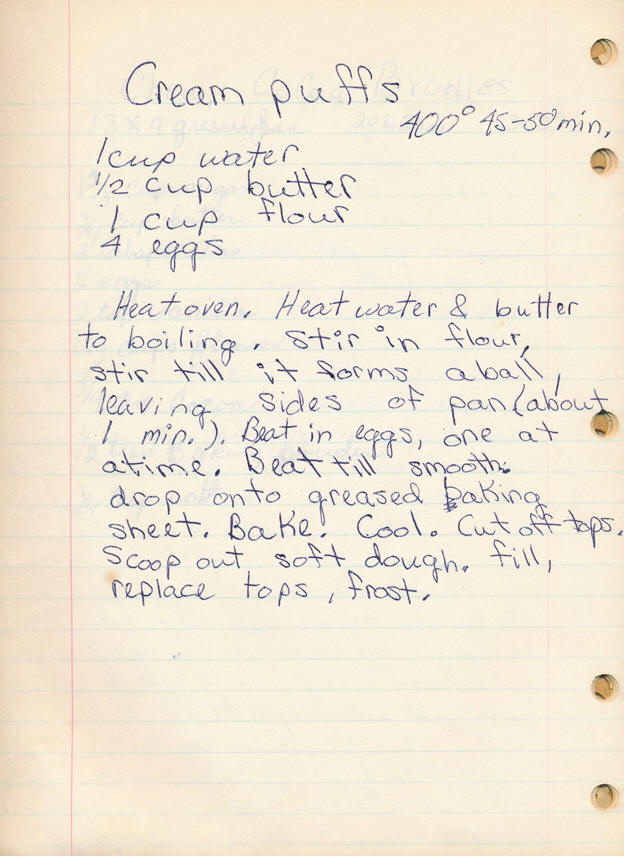 Cream puffs
400° 45-50 min.
1 cup water
1/2 cup butter
1 cup flour
4 eggs
Heat oven. Heat water & butter
to boiling. Stir in flour,
stir till it forms a ball,
leaving sides of pan (about
1 min.). Beat in eggs, one at
a time. Beat till smooth.
drop onto greased baking
sheet. Bake. Cool. Cut off tops.
Scoop out soft dough. fill,
replace tops, frost.